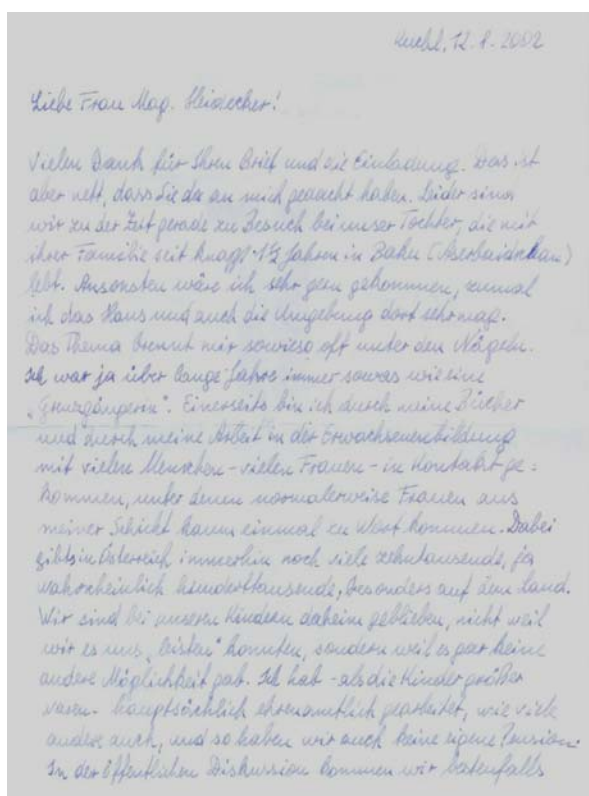 Kuchl, 12.8.2002
Liebe Frau Mag. Heidecker!
Vielen Dank für Ihren Brief und die Einladung. Das ist
aber nett, dass Sie da an mich gedacht haben. Leider sind
wir zu der Zeit gerade zu Besuch bei unser Tochter, die mit
ihrer Familie seit knapp 1½ Jahren in Baku (Aserbaidschan)
lebt. Ansonsten wäre ich sehr gern gekommen, zumal
ich das Haus und auch die Umgebung dort sehr mag.
Das Thema brennt mir sowieso oft unter den Nägeln.
Ich war ja über lange Jahre immer sowas wie eine
„Grenzgängerin". Einerseits bin ich durch meine Bücher
und durch meine Arbeit in der Erwachsenenbildung
mit vielen Menschen - vielen Frauen - in Kontakt ge=
kommen, unter denen normalerweise Frauen aus
meiner Schicht kaum einmal zu Wort kommen. Dabei
gibts in Österreich immerhin noch viele zehntausende, ja
wahrscheinlich hunderttausende, besonders auf dem Land.
Wir sind bei unseren Kindern daheim geblieben, nicht weil
wir es uns „leisten" konnten, sondern weil es gar keine
andere Möglichkeit gab. Ich hab - als die Kinder größer
waren - hauptsächlich ehrenamtlich gearbeitet, wie viele
andere auch, und so haben wir auch keine eigene Pension.
In der öffentlichen Diskussion kommen wir